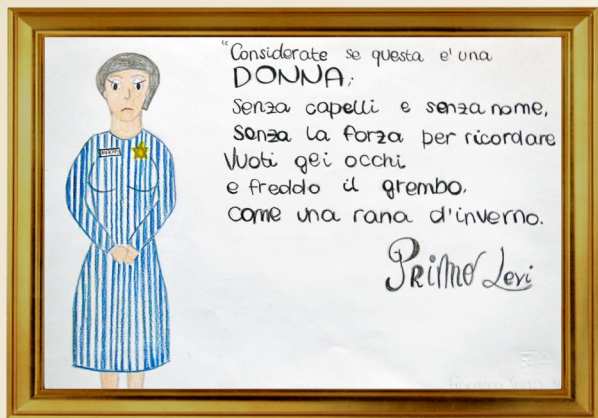 "Considerate se questa e' una
DONNA;
Senza capelli e senza nome,
Senza la forza per ricordare
Vuoti gei occhi
e freddo il grembo.
come una rana d'inverno.
Primo Levi